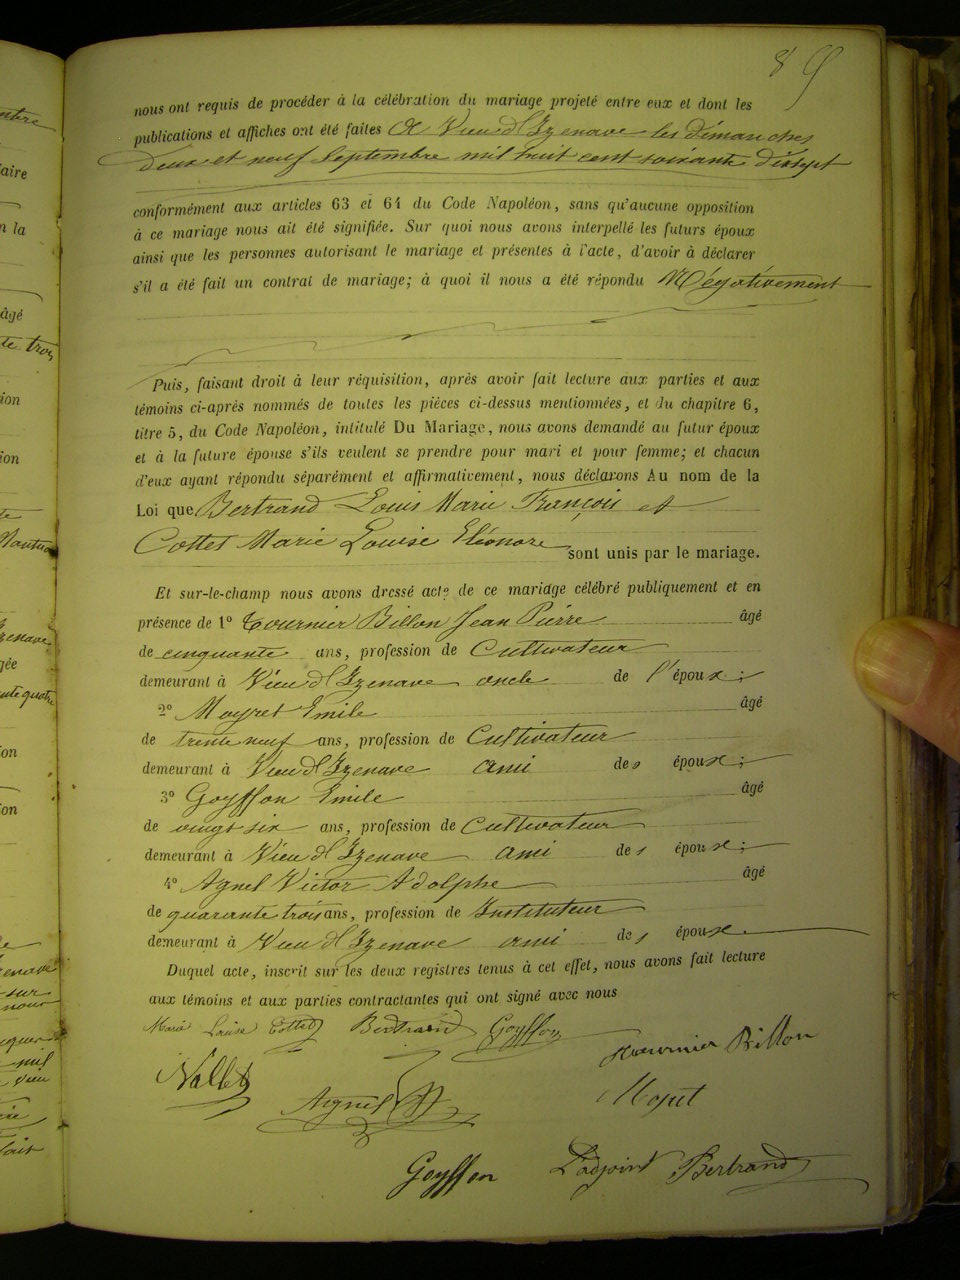 8
nous ont requis de procéder à la célébration du mariage projeté entre eux et dont les
publications et affiches ont été faites à Vieu d'Izenave les dimanches
deux et neuf Septembre mil huit cent soixante dixsept
conformément aux articles 63 et 64 du Code Napoléon, sans qu'aucune opposition
à ce mariage nous ait été signifiée. Sur quoi nous avons interpellé les futurs époux
ainsi que les personnes autorisant le mariage et présentes à l'acte, d'avoir à déclarer
s'il a été fait un contrat de mariage; à quoi il nous a été répondu Négativement
Puis, faisant droit à leur réquisition, après avoir fait lecture aux parties et aux
témoins ci-après nommés de toutes les pièces ci-dessus mentionnées, et du chapitre 6,
titre 5, du Code Napoléon, intitulé Du Mariage, nous avons demandé au futur époux
et à la future épouse s'ils veulent se prendre pour mari et pour femme; et chacun
d'eux ayant répondu séparément et affirmativement, nous déclarons Au nom de la
Loi que Bertrand Louis Marie François et
Cottet Marie Louise Eléonore sont unis par le mariage.
Et sur-le-champ nous avons dressé acte de ce mariage célébré publiquement et en
présence de 1º Tournier Billon Jean Pierre âgé
de cinquante ans, profession de Cultivateur
demeurant à Vieu d'Izenave oncle de l'époux;
2º Moyret Emile âgé
de trente neuf ans, profession de Cultivateur
demeurant à Vieu d'Izenave ami des époux;
3º Goyffon Emile âgé
de vingt six ans, profession de Cultivateur
demeurant à Vieu d'Izenave ami des époux;
4º Agnel Victor Adolphe âgé
de quarante trois ans, profession de Instituteur
demeurant à Vieu d'Izenave ami des époux.
Duquel acte, inscrit sur les deux registres tenus à cet effet, nous avons fait lecture
aux témoins et aux parties contractantes qui ont signé avec nous
Marie Louise Cottet Bertrand Goyffon
Tournier Billon
Nallet
Agnel
Goyffon L'adjoint Bertrand